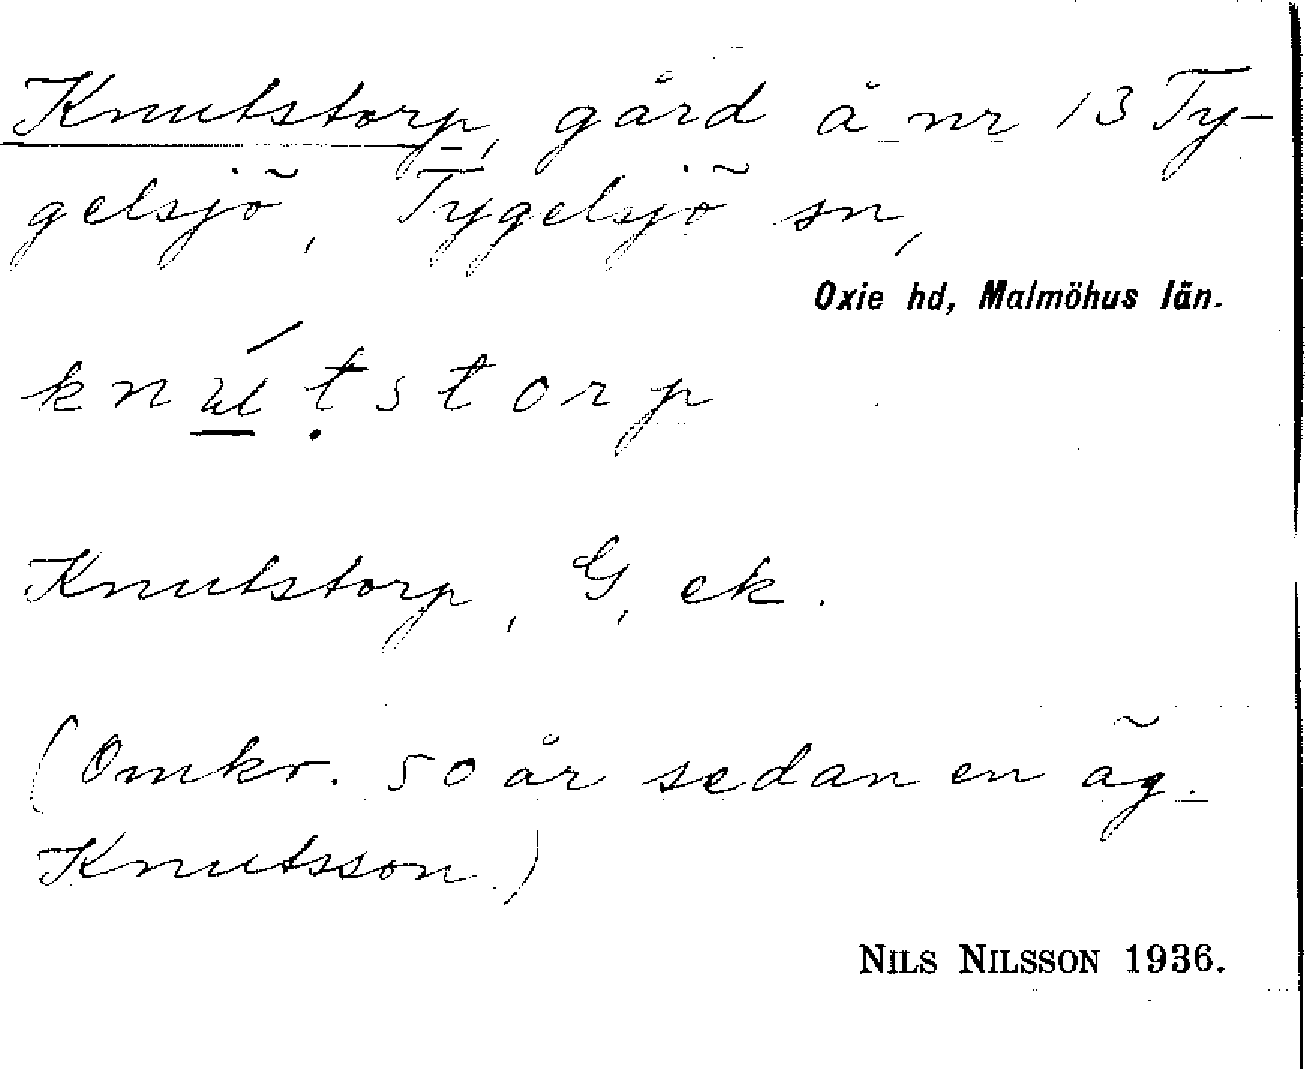 Knutstorp, gård å nr 13 Ty-
gelsjö, Tygelsjö sn,
Oxie hd, Malmöhus län.
knú̱ṭstorp
Knutstorp, G, ek.
(Omkr. 50 år sedan en äg.
Knutsson.)
NILS NILSSON 1936.